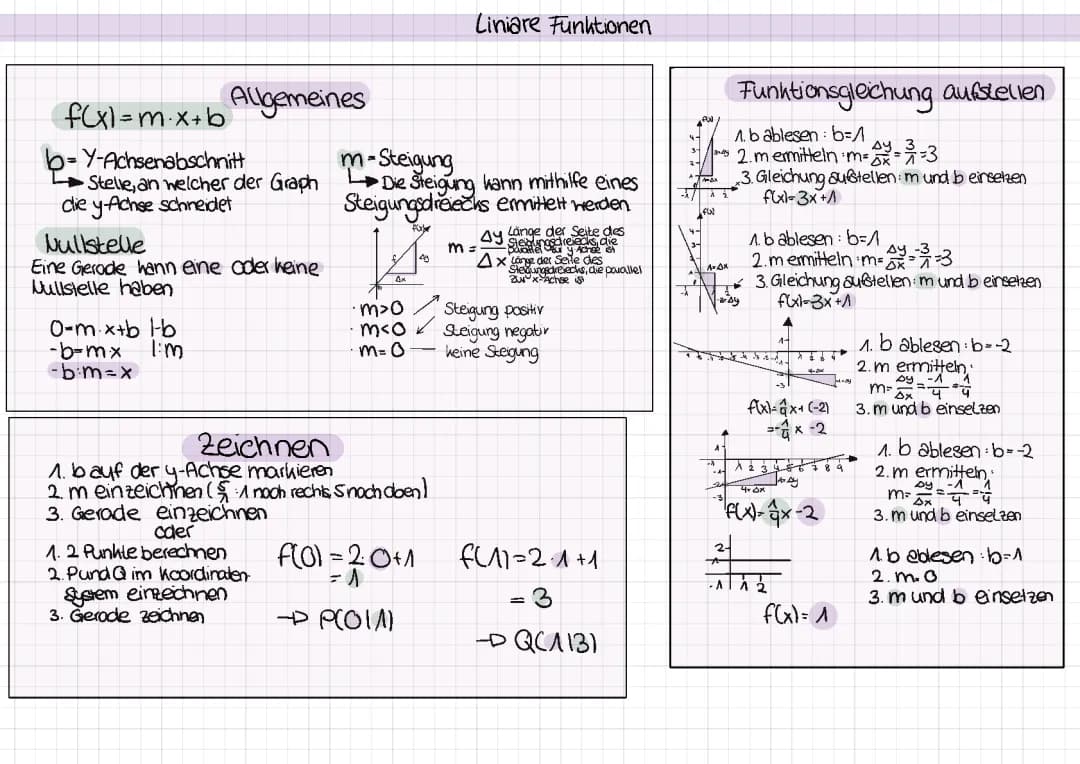 Liniare Funktionen
Allgemeines
f(x)=m·x+b
b=Y-Achsenabschnitt
Stelle, an welcher der Graph
die y-Achse schneidet
m=Steigung
Die Steigung kann mithilfe eines
Steigungsdreiecks ermittelt werden
f(x)
Δy
Δx
m = Δy Länge der Seite des Steigungsdreiecks, die parallel zur y Achse ist
Δx Länge der Seite des Steigungsdreiecks, die parallel zur x-Achse ist
· m>0 Steigung positiv
· m<0 Steigung negativ
· m=0 keine Steigung
Nullstelle
Eine Gerade kann eine oder keine
Nullstelle haben
0=m·x+b |-b
-b=mx |:m
-b:m=x
Zeichnen
1. b auf der y-Achse markieren
2. m einzeichnen (5/1 1 nach rechts, 5 nach oben)
3. Gerade einzeichnen
oder
1. 2 Punkte berechnen
2. P und Q im Koordinaten-
system einzeichnen
3. Gerade zeichnen
f(0)=2·0+1
= 1
→ P(0|1)
f(1)=2·1+1
= 3
→ Q(1|3)
Funktionsgleichung aufstellen
1. b ablesen: b=1
2. m ermitteln: m=Δy/Δx=3/1=3
3. Gleichung aufstellen: m und b einsetzen
f(x)=3x+1
1. b ablesen: b=1
2. m ermitteln: m=Δy/Δx=-3/1=-3
3. Gleichung aufstellen: m und b einsetzen
f(x)=-3x+1
1. b ablesen: b=-2
2. m ermitteln:
m=Δy/Δx=-1/4=-1/4
3. m und b einsetzen
f(x)=-1/4x+(-2)
=-1/4x-2
1. b ablesen: b=-2
2. m ermitteln:
m=Δy/Δx=-1/4=-1/4
3. m und b einsetzen
f(x)=1/4x-2
1 b ablesen: b=1
2. m=0
3. m und b einsetzen
f(x)=1